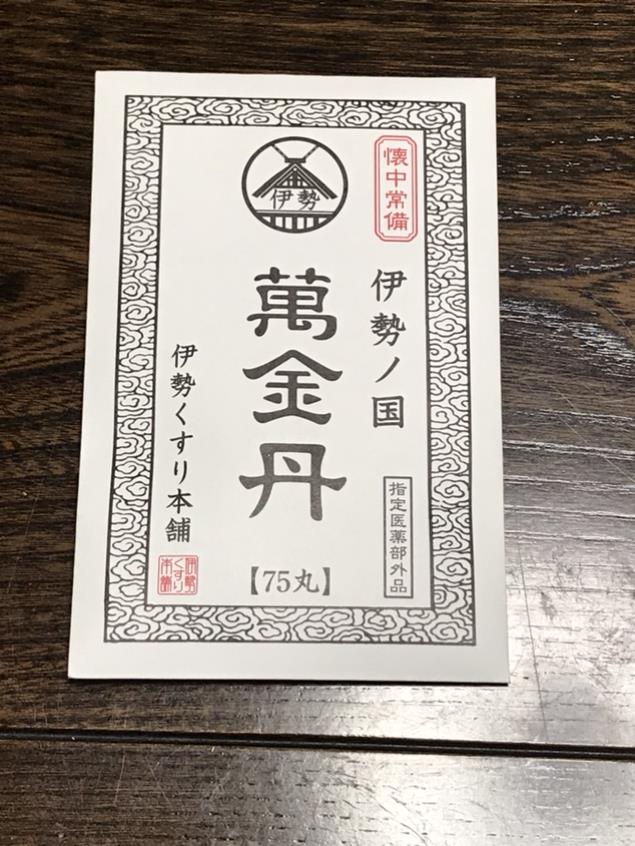 懐中常備
伊勢
伊勢ノ国
萬金丹
伊勢くすり本舗
指定医薬部外品
【75丸】
伊勢
くすり
本舗